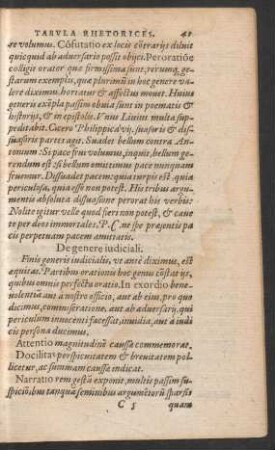 TABVLA RHETORICES. 41
re volumus. Cōfutatio ex locis cōtrarijs diluit
quicquid ab adversario possit obijci. Peroratiōe
colligit orator quæ firmissima sunt, rerumq́; ge-
starum exemplis, quæ plurimū in hoc genere va-
lere diximus, hortatur & affectus movet. Huius
generis exēpla passim obvia sunt in poematis &
historijs, & in epistolis. Vnus Livius multa sup-
peditabit. Cicero Philippica vij. suasoris & dis-
suasoris partes agit. Suadet bellum contra An-
tonium: Si pace frui volumus, inquit, bellum ge-
rendum est: Si bellum omittemus pace nunquam
fruemur. Dissuadet pacem: quia turpis est, quia
periculosa, quia esse non potest. His tribus argu-
mentis absoluta dissuasione perorat his verbis:
Nolite igitur velle quod fieri non potest, & cave-
te per deos immortales. P. C. ne spe præsentis pa-
cis perpetuam pacem amittatis.
De genere iudiciali.
Finis generis iudicialis, ut antè diximus, est
æquitas. Partibus orationis hoc genus cōstat ijs,
quibus omnis perfecta oratio. In exordio bene-
volentiā aut a nostro officio, aut ab eius, pro quo
dicimus, commiseratione, aut ab adversarij, qui
periculum innocenti facessat, invidia, aut a iudi-
cis persona ducimus.
Attentio magnitudinē caussæ commemorat.
Docilitas perspicuitatem & brevitatem pol-
licetur, ac summam caussæ indicat.
Narratio rem gestā exponit, multis passim su-
spiciōibus tanquā seminibus argumētorū sparsis
C 5 quam